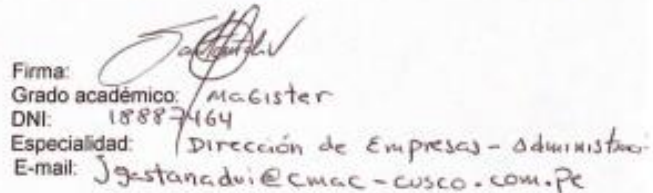 Firma:
Grado académico: Magister
DNI: 18887464
Especialidad: Dirección de Empresas - Administraci
E-mail: Jgastanadui@cmac-cusco.com.pe